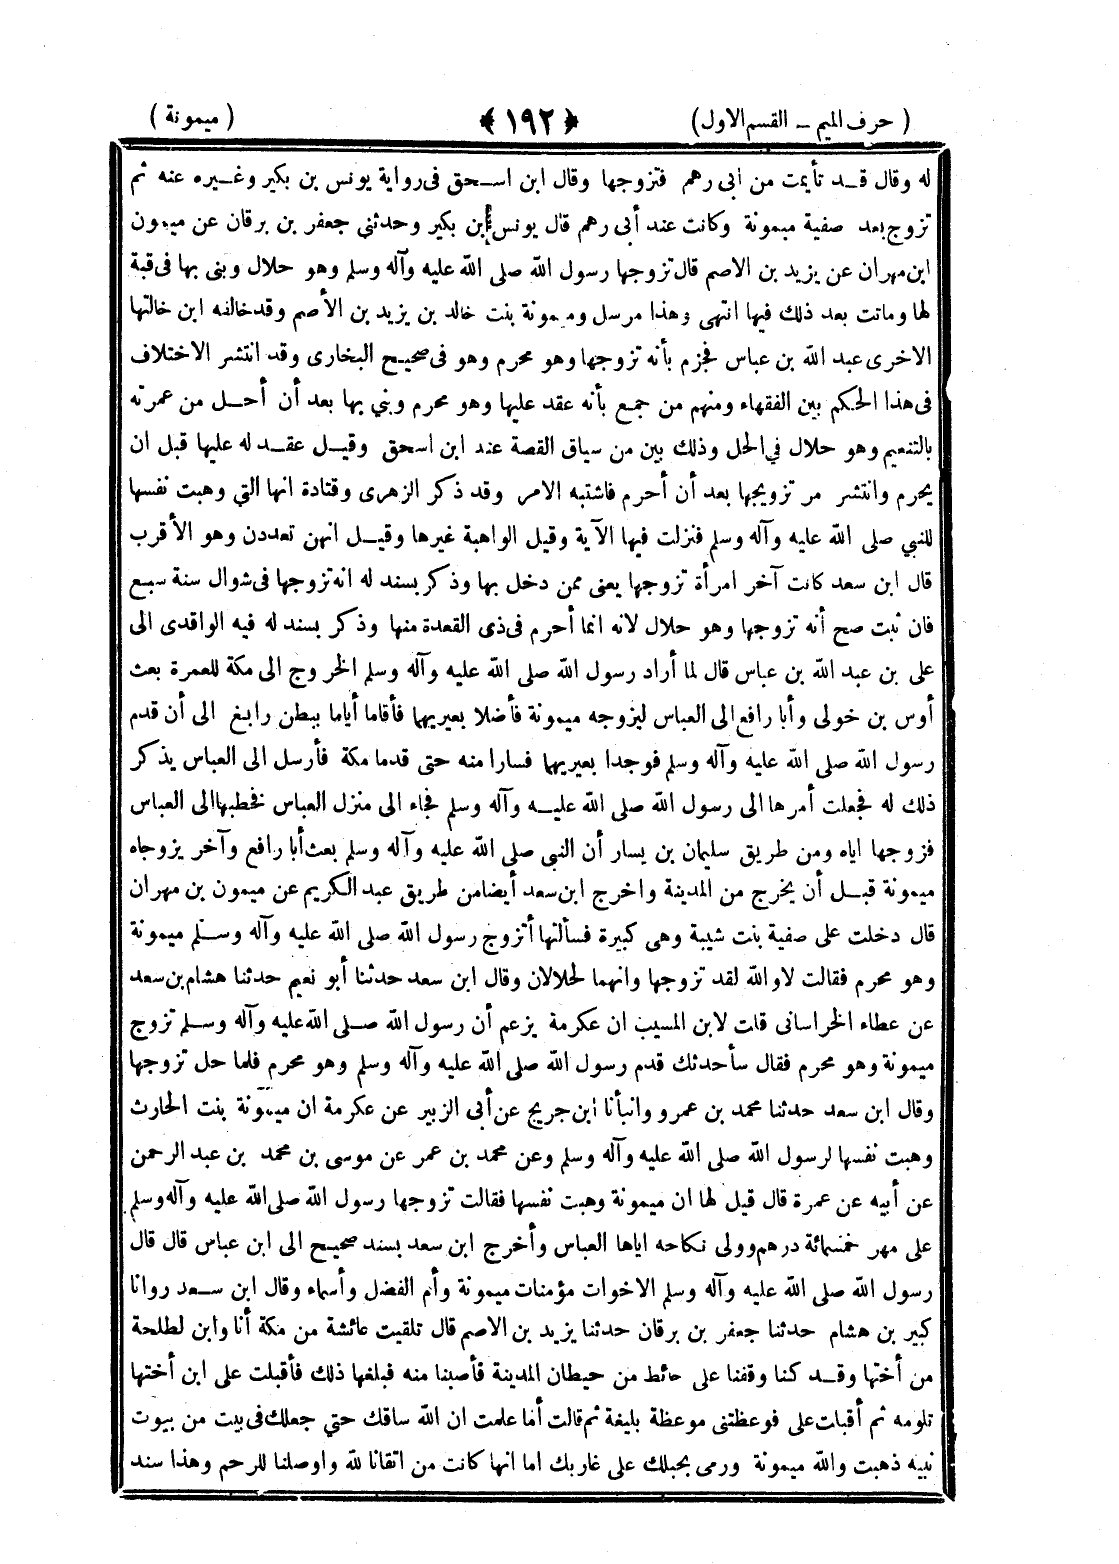 ( حرف الميم ــ القسم الاول) ﴿ ١٩٢ ﴾ ( ميمونة )
له وقال قد تأيمت من ابى رهم فتزوجها وقال ابن اسحق فى رواية يونس بن بكير وغيره عنه ثم
تزوج بعد صفية ميمونة وكانت عند أبى رهم قال يونس بن بكير وحدثني جعفر بن برقان عن ميمون
ابن مهران عن يزيد بن الاصم قال تزوجها رسول الله صلى الله عليه وآله وسلم وهو حلال وبنى بها فى قبة
لها وماتت بعد ذلك فيها انتهى وهذا مرسل وميمونة بنت خالد بن يزيد بن الأصم وقد خالفه ابن خالتها
الاخرى عبد الله بن عباس فجزم بأنه تزوجها وهو محرم وهو فى صحيح البخارى وقد انتشر الاختلاف
فى هذا الحكم بين الفقهاء ومنهم من جمع بأنه عقد عليها وهو محرم وبني بها بعد أن أحل من عمرته
بالتنعيم وهو حلال في الحل وذلك بين من سياق القصة عند ابن اسحق وقيل عقد له عليها قبل ان
يحرم وانتشر مر تزويجها بعد أن أحرم فاشتبه الامر وقد ذكر الزهرى وقتادة انها التي وهبت نفسها
للنبي صلى الله عليه وآله وسلم فنزلت فيها الآية وقيل الواهبة غيرها وقيل انهن تعددن وهو الأقرب
قال ابن سعد كانت آخر امرأة تزوجها يعنى ممن دخل بها وذكر بسند له انه تزوجها فى شوال سنة سبع
فان ثبت صح أنه تزوجها وهو حلال لانه انما أحرم فى ذى القعدة منها وذكر بسند له فيه الواقدى الى
على بن عبد الله بن عباس قال لما أراد رسول الله صلى الله عليه وآله وسلم الخروج الى مكة للعمرة بعث
أوس بن خولى وأبا رافع الى العباس ليزوجه ميمونة فأضلا بعيريهما فأقاما أياما ببطن رابغ الى أن قدم
رسول الله صلى الله عليه وآله وسلم فوجدا بعيريهما فسارا منه حتى قدما مكة فأرسل الى العباس يذكر
ذلك له فجعلت أمرها الى رسول الله صلى الله عليه وآله وسلم فجاء الى منزل العباس فخطبها الى العباس
فزوجها اياه ومن طريق سليمان بن يسار أن النبى صلى الله عليه وآله وسلم بعث أبا رافع وآخر يزوجاه
ميمونة قبل أن يخرج من المدينة واخرج ابن سعد أيضا من طريق عبد الكريم عن ميمون بن مهران
قال دخلت على صفية بنت شيبة وهى كبيرة فسألتها أتزوج رسول الله صلى الله عليه وآله وسلم ميمونة
وهو محرم فقالت لا والله لقد تزوجها وانهما لحلالان وقال ابن سعد حدثنا أبو نعيم حدثنا هشام بن سعد
عن عطاء الخراسانى قلت لابن المسيب ان عكرمة يزعم أن رسول الله صلى الله عليه وآله وسلم تزوج
ميمونة وهو محرم فقال سأحدثك قدم رسول الله صلى الله عليه وآله وسلم وهو محرم فلما حل تزوجها
وقال ابن سعد حدثنا محمد بن عمرو وانبأنا ابن جريج عن أبى الزبير عن عكرمة ان ميمونة بنت الحارث
وهبت نفسها لرسول الله صلى الله عليه وآله وسلم وعن محمد بن عمر عن موسى بن محمد بن عبد الرحمن
عن أبيه عن عمرة قال قيل لها ان ميمونة وهبت نفسها فقالت تزوجها رسول الله صلى الله عليه وآله وسلم
على مهر خمسمائة درهم وولى نكاحه اياها العباس وأخرج ابن سعد بسند صحيح الى ابن عباس قال قال
رسول الله صلى الله عليه وآله وسلم الاخوات مؤمنات ميمونة وأم الفضل وأسماء وقال ابن سعد روانا
كبير بن هشام حدثنا جعفر بن برقان حدثنا يزيد بن الاصم قال تلقيت عائشة من مكة أنا وابن لطلحة
من أختها وقد كنا وقفنا على حائط من حيطان المدينة فأصبنا منه فبلغها ذلك فأقبلت على ابن أختها
تلومه ثم أقبلت على فوعظتنى موعظة بليغة ثم قالت أما علمت ان الله ساقك حتي جعلك فى بيت من بيوت
نبيه ذهبت والله ميمونة ورمى بحبلك على غاربك اما انها كانت من اتقانا لله واوصلنا للرحم وهذا سند